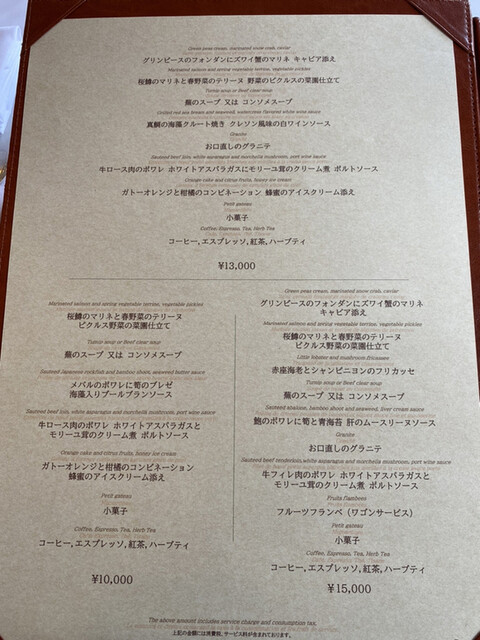 Green peas cream, marinated snow crab, caviar
グリンピースのフォンダンにズワイ蟹のマリネ キャビア添え
Marinated salmon and spring vegetable terrine, vegetable pickles
桜鱒のマリネと春野菜のテリーヌ 野菜のピクルスの菜園仕立て
Turnip soup or Beef clear soup
蕪のスープ 又は コンソメスープ
Grilled red sea bream and seaweed, watercress flavored white wine sauce
真鯛の海藻クルート焼き クレソン風味の白ワインソース
Granite
お口直しのグラニテ
Sauteed beef loin, white asparagus and morchella mushroom, port wine sauce
牛ロース肉のポワレ ホワイトアスパラガスにモリーユ茸のクリーム煮 ポルトソース
Orange cake and citrus fruits, honey ice cream
ガトーオレンジと柑橘のコンビネーション 蜂蜜のアイスクリーム添え
Petit gateau
小菓子
Coffee, Espresso, Tea, Herb Tea
コーヒー, エスプレッソ, 紅茶, ハーブティ
¥13,000
Marinated salmon and spring vegetable terrine, vegetable pickles
桜鱒のマリネと春野菜のテリーヌ
ピクルス野菜の菜園仕立て
Turnip soup or Beef clear soup
蕪のスープ 又は コンソメスープ
Sauteed Japanese rockfish and bamboo shoot, seaweed butter sauce
メバルのポワレに筍のブレゼ
海藻入りブールブランソース
Sauteed beef loin, white asparagus and morchella mushroom, port wine sauce
牛ロース肉のポワレ ホワイトアスパラガスと
モリーユ茸のクリーム煮 ポルトソース
Orange cake and citrus fruits, honey ice cream
ガトーオレンジと柑橘のコンビネーション
蜂蜜のアイスクリーム添え
Petit gateau
小菓子
Coffee, Espresso, Tea, Herb Tea
コーヒー, エスプレッソ, 紅茶, ハーブティ
¥10,000
Green peas cream, marinated snow crab, caviar
グリンピースのフォンダンにズワイ蟹のマリネ
キャビア添え
Marinated salmon and spring vegetable terrine, vegetable pickles
桜鱒のマリネと春野菜のテリーヌ
ピクルス野菜の菜園仕立て
Little lobster and mushroom fricassee
赤座海老とシャンピニヨンのフリカッセ
Turnip soup or Beef clear soup
蕪のスープ 又は コンソメスープ
Sauteed abalone, bamboo shoot and seaweed, liver cream sauce
鮑のポワレに筍と青海苔 肝のムースリーヌソース
Granite
お口直しのグラニテ
Sauteed beef tenderloin, white asparagus and morchella mushroom, port wine sauce
牛フィレ肉のポワレ ホワイトアスパラガスと
モリーユ茸のクリーム煮 ポルトソース
Fruits flambees
フルーツフランベ (ワゴンサービス)
Petit gateau
小菓子
Coffee, Espresso, Tea, Herb Tea
コーヒー, エスプレッソ, 紅茶, ハーブティ
¥15,000
The above amount includes service charge and consumption tax.
上記の金額には消費税、サービス料が含まれております。